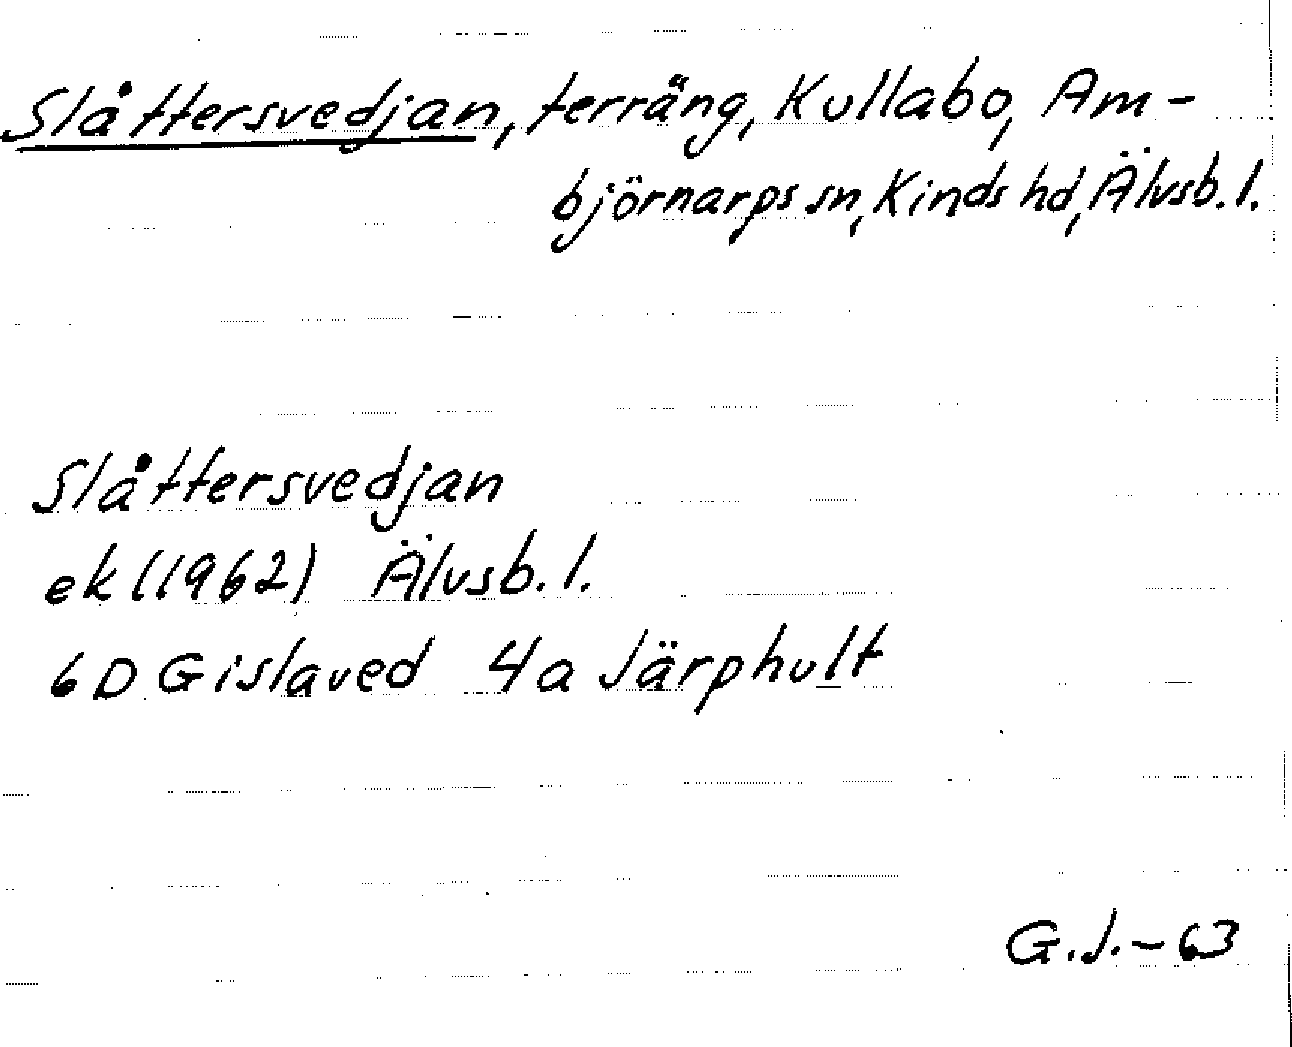 Slåttersvedjan, terräng, Kullabo, Am-
björnarps sn, Kinds hd, Älvsb. l.
Slåttersvedjan
ek (1962) Älvsb. l.
6D Gislaved 4a Järphult
G.J. - 63